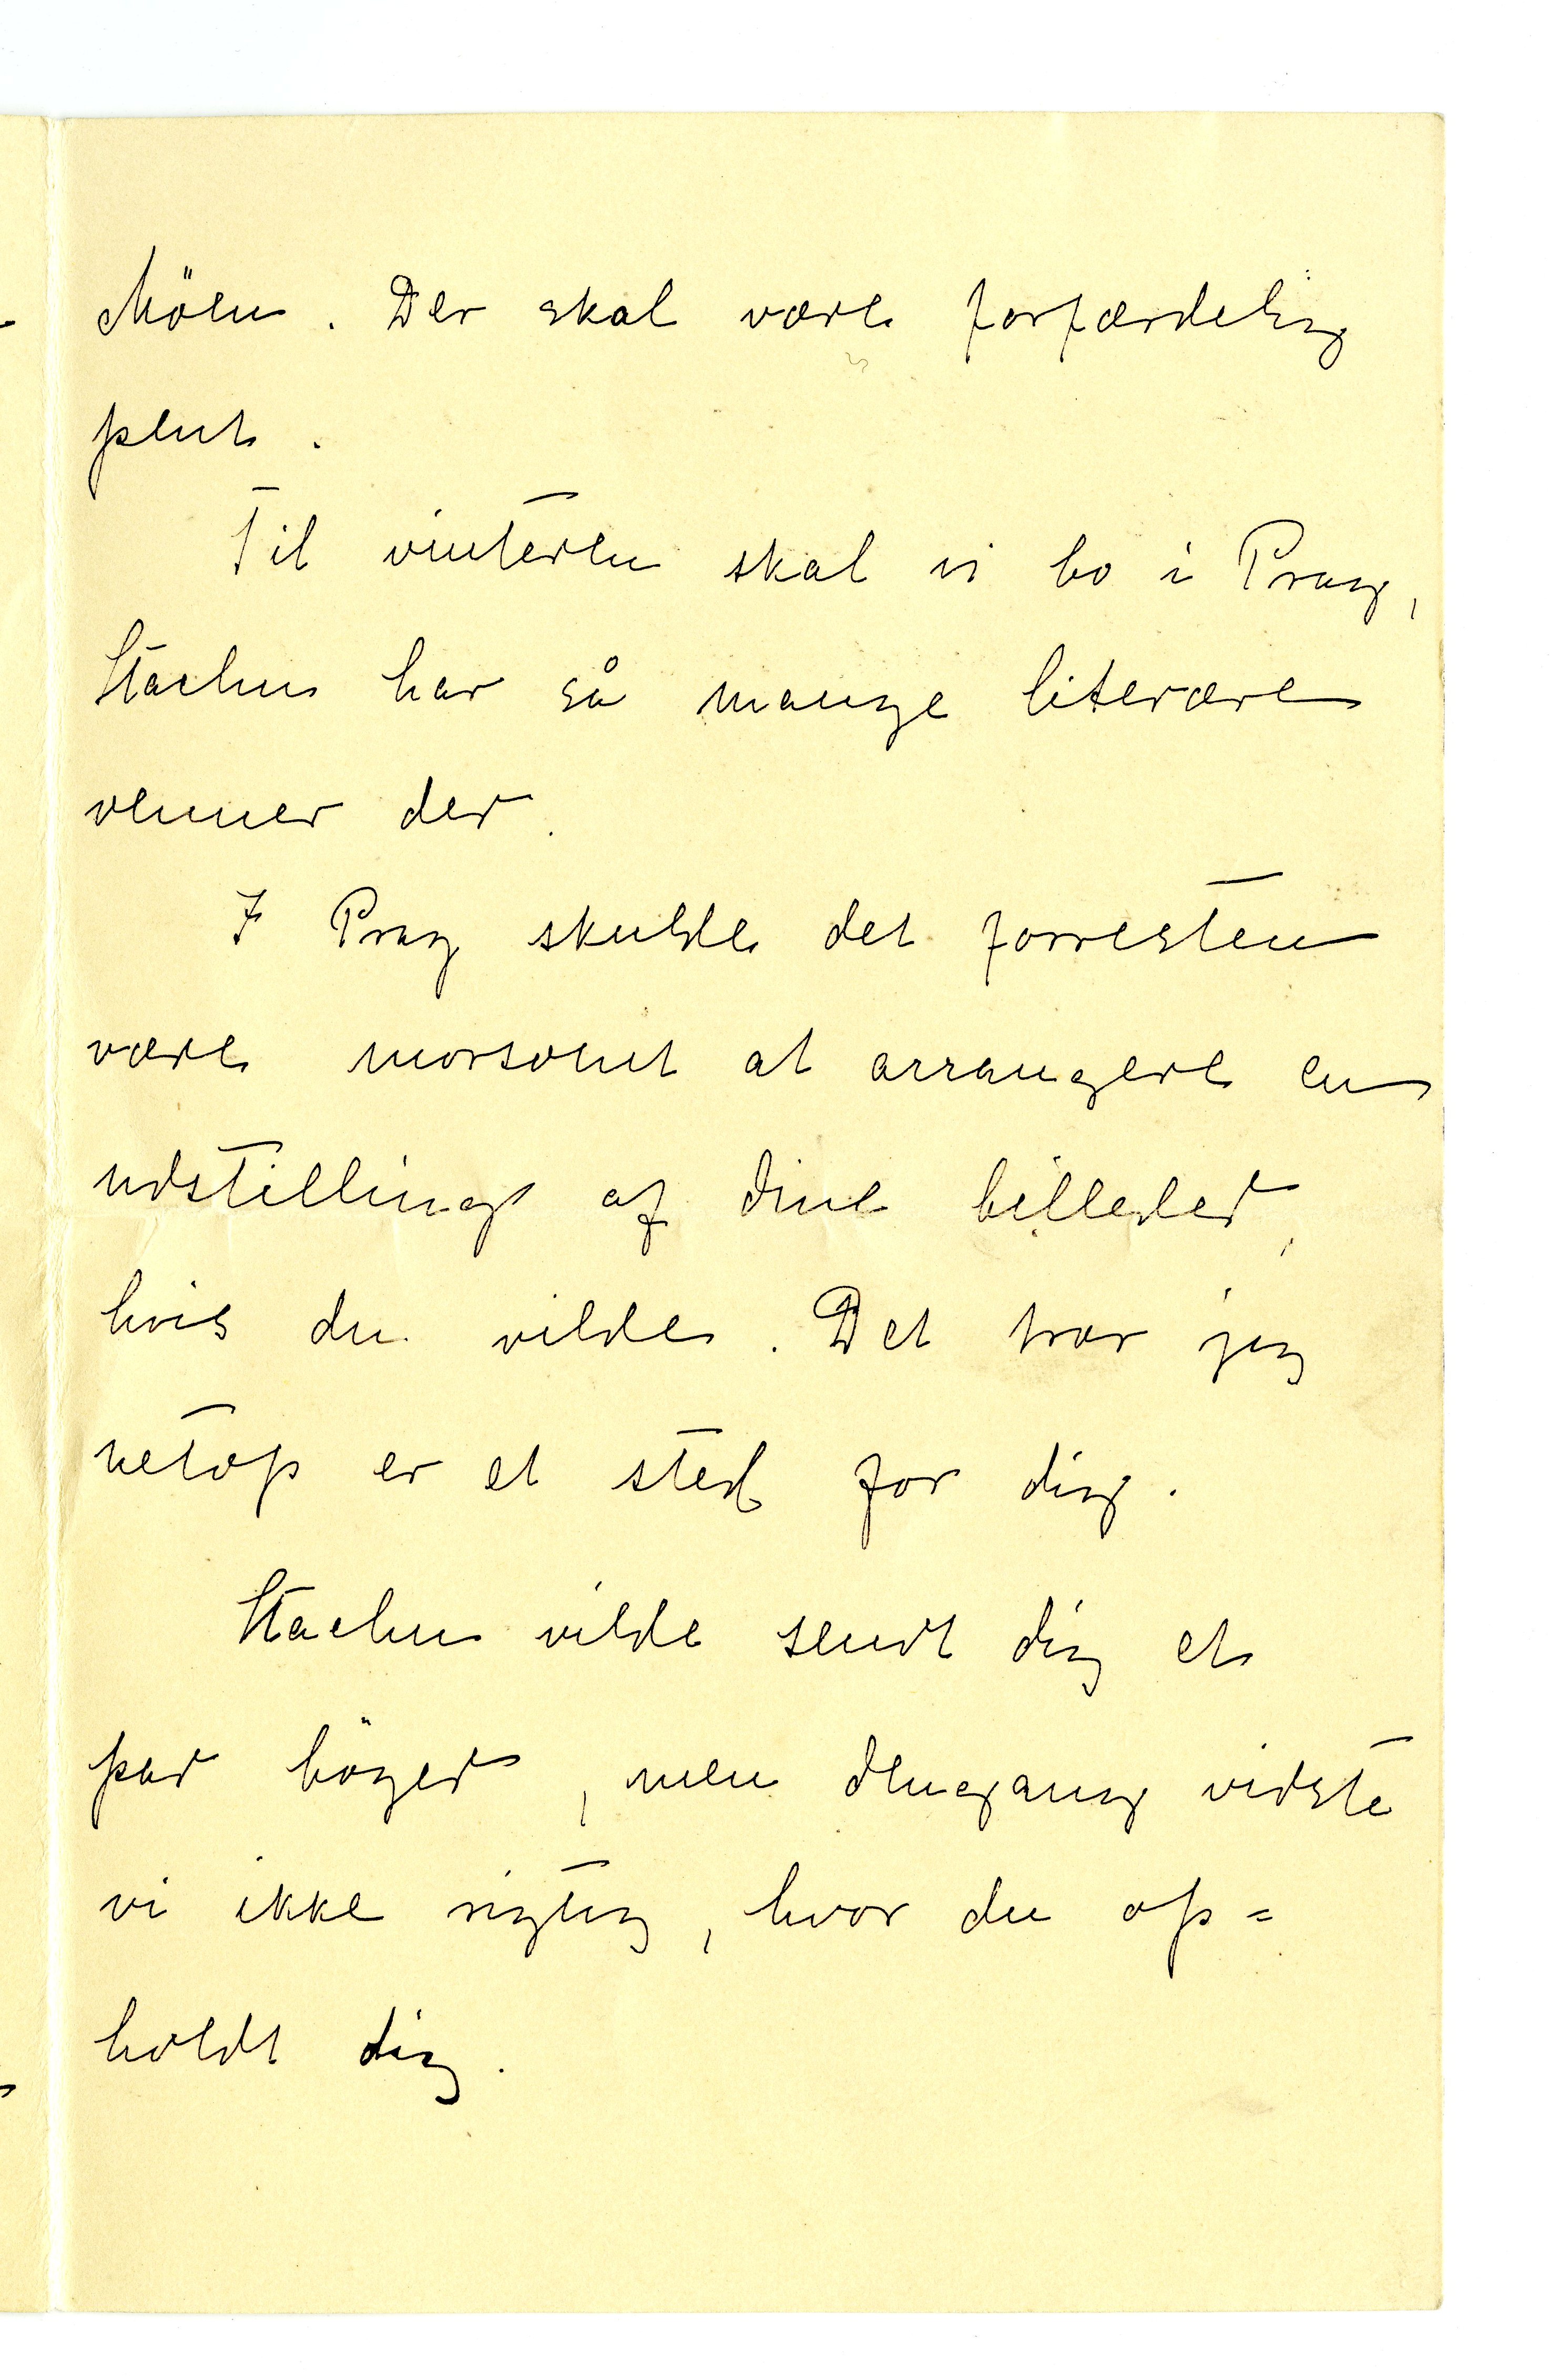 Möen. Der skal være forfærdelig
pent.
Til vinteren skal vi bo i Prag,
Stachu har så mange literære
venner der.
I Prag skulde det forresten
være morsomt at arrangere en
udstilling af dine billeder,
hvis du vilde. Det tror jeg
netop er et sted for dig.
Stachu vilde sendt dig et
par böger, men dengang vidste
vi ikke rigtig, hvor du op=
holdt dig.